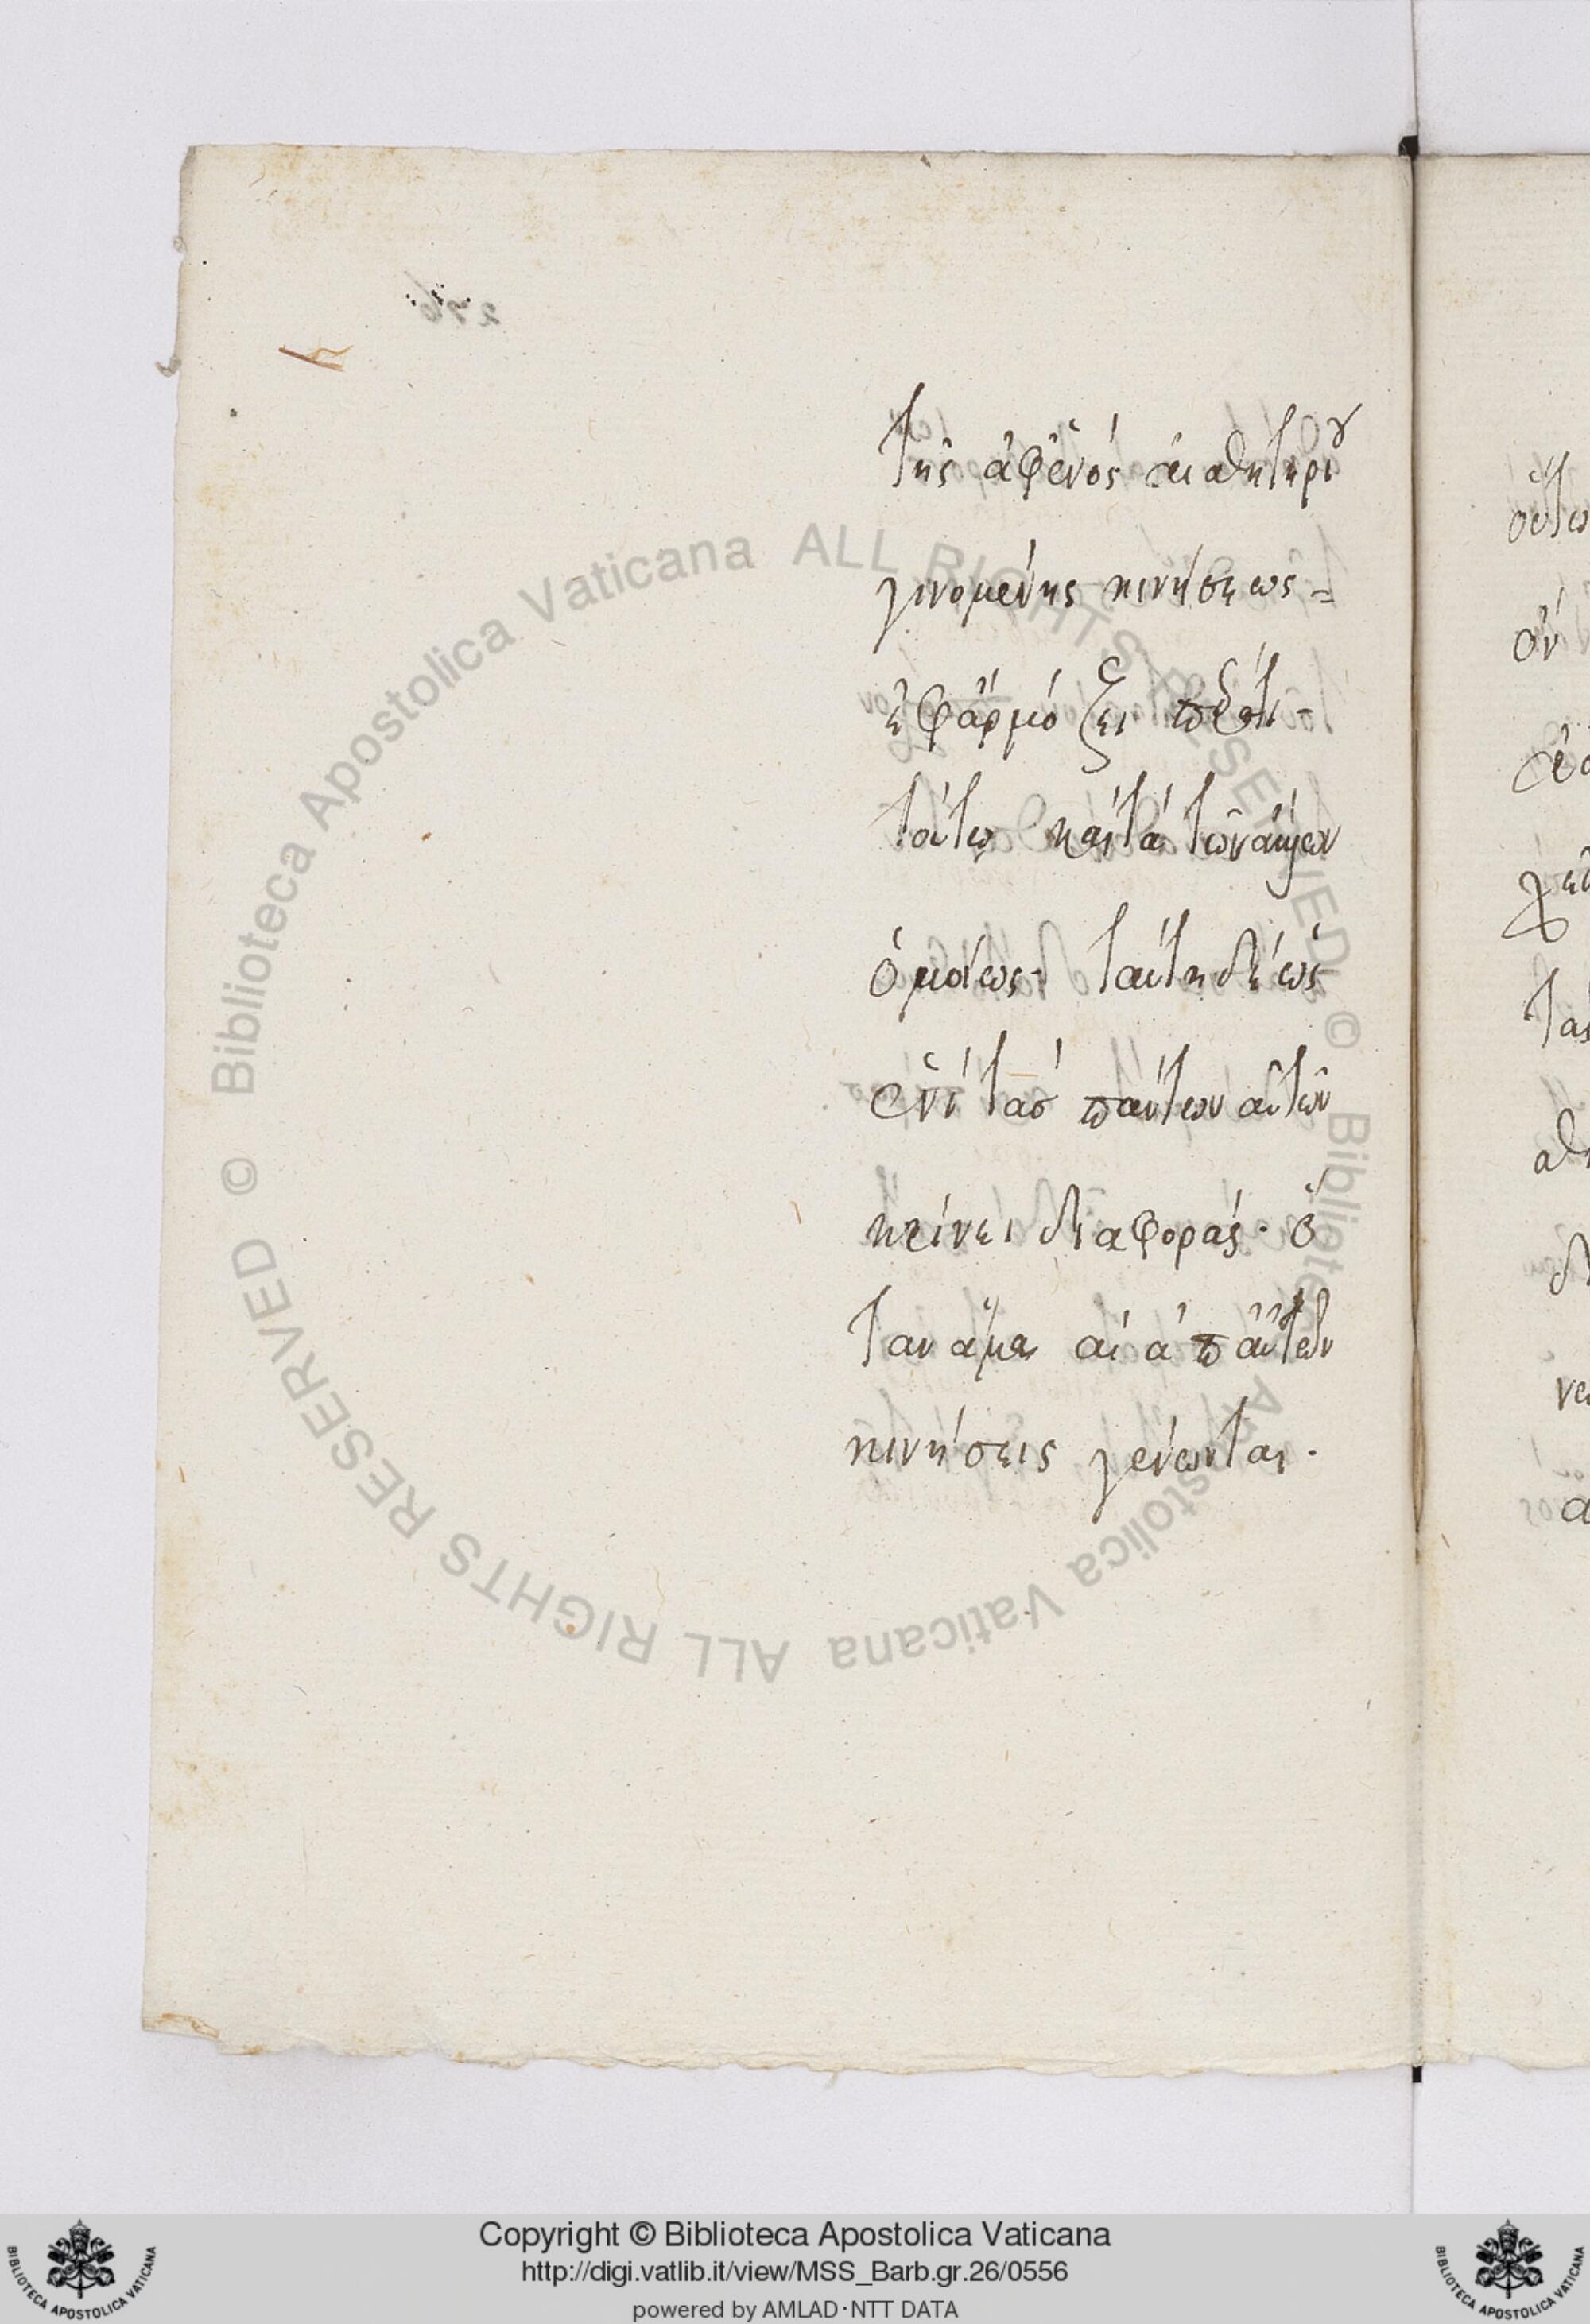 τῆς ἀφ' ἑνὸς αἰσθητηρίου
γινομένης κινήσεως
ἐφαρμόζει
τούτῳ καὶ τὰ τῶν ἄλλων
ὁμοίως. ταύτῃ δὲ ὡς
ἑνὶ τὰς πάντων αὐτῶν
κρίνει διαφορὰς. ὅ
ταν ἅμα αἱ ἀπ' αὐτῶν
κινήσεις γένωνται.
276
Biblioteca Apostolica Vaticana ALL RIGHTS RESERVED © Biblioteca Apostolica Vaticana ALL RIGHTS RESERVED ©
Copyright © Biblioteca Apostolica Vaticana
http://digi.vatlib.it/view/MSS_Barb.gr.26/0556
powered by AMLAD·NTT DATA
BIBLIOTECA APOSTOLICA VATICANA
BIBLIOTECA APOSTOLICA VATICANA